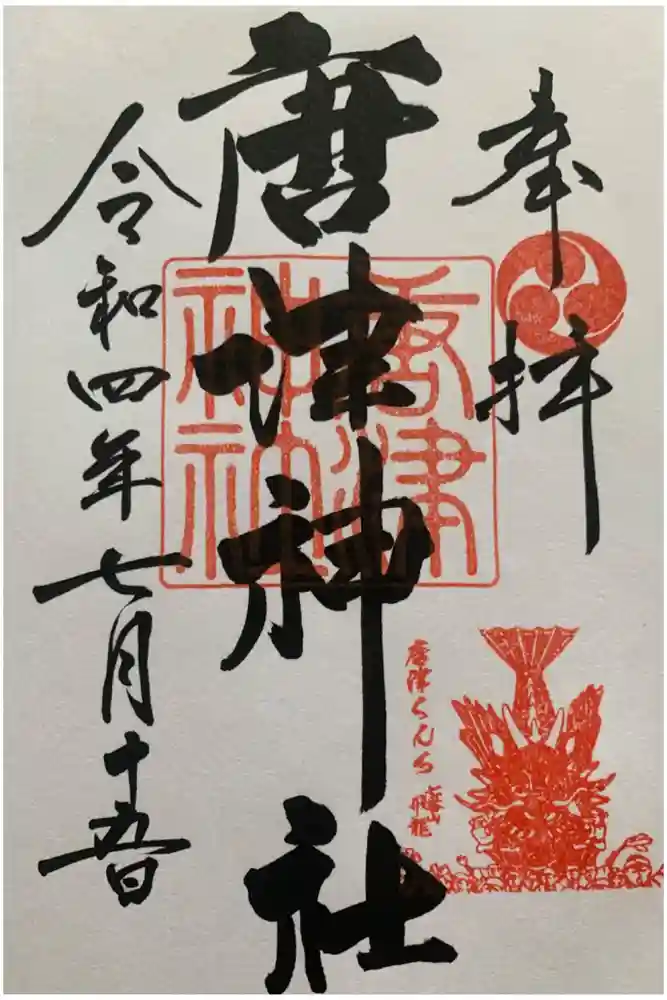 奉拝
唐津神社
唐津神社
唐津くんち
令和四年七月十五日